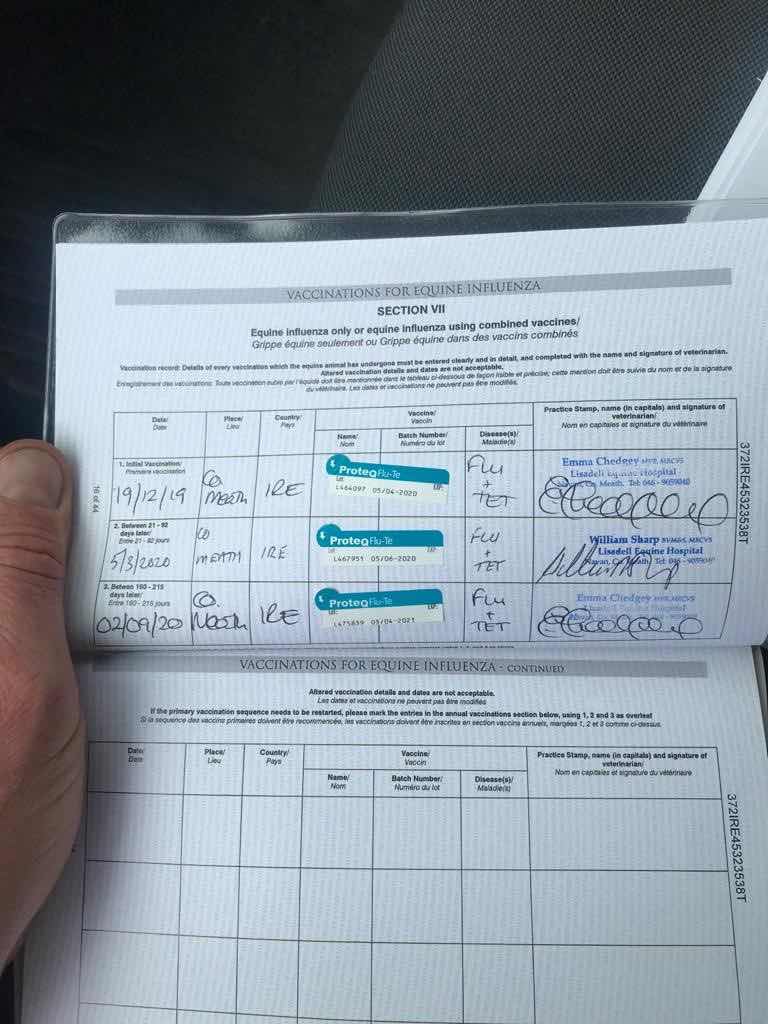 VACCINATIONS FOR EQUINE INFLUENZA
SECTION VII
Equine influenza only or equine influenza using combined vaccines/
Grippe équine seulement ou Grippe équine dans des vaccins combinés
Vaccination record: Details of every vaccination which the equine animal has undergone must be entered clearly and in detail, and completed with the name and signature of veterinarian.
Altered vaccination details and dates are not acceptable.
Enregistrement des vaccinations: Toute vaccination subie par l'équidé doit être mentionnée dans le tableau ci-dessous de façon lisible et précise; cette mention doit être suivie du nom et de la signature
du vétérinaire. Les dates et vaccinations ne peuvent pas être modifiés.
Date/
Date
Place/
Lieu
Country/
Pays
Vaccine/
Vaccin
Name/
Nom
Batch Number/
Numéro du lot
Disease(s)/
Maladie(s)
Practice Stamp, name (in capitals) and signature of
veterinarian/
Nom en capitales et signature du vétérinaire
1. Initial Vaccination/
Première vaccination
19/12/19
Co.
MEATH
IRE
ProteqFlu-Te
Lot
EXP:
L464097 05/04/2020
FLU
+
TET
Emma Chedgey MVB, MRCVS
Lisadell Equine Hospital
Navan, Co. Meath. Tel: 046 - 9059040
2. Between 21 - 92
days later/
Entre 21 - 92 jours
5/3/2020
CO
MEATH
IRE
ProteqFlu-Te
L467951 05/06/2020
FLU
+
TET
William Sharp BVM&S, MRCVS
Lisadell Equine Hospital
Navan, Co. Meath. Tel: 046 - 9059040
3. Betwen 150 - 215
days later/
Entre 150 - 215 jours
02/09/20
Co.
Meath
IRE
ProteqFlu-Te
EXP:
L475839 05/04/2021
FLU
+
TET
Emma Chedgey MVB, MRCVS
Lisadell Equine Hospital
372IRE45323538T
16 of 44
VACCINATIONS FOR EQUINE INFLUENZA - CONTINUED
Altered vaccination details and dates are not acceptable.
Les dates et vaccinations ne peuvent pas être modifiés
If the primary vaccination sequence needs to be restarted, please mark the entries in the annual vaccinations section below, using 1, 2 and 3 as overleaf
Si la sequence des vaccins primaires doivent être recommencée, les vaccinations doivent être inscrites en section vaccins annuels, marqées 1, 2 et 3 comme ci-dessus.
Date/
Date
Place/
Lieu
Country/
Pays
Vaccine/
Vaccin
Name/
Nom
Batch Number/
Numéro du lot
Disease(s)/
Maladie(s)
Practice Stamp, name (in capitals) and signature of
veterinarian/
Nom en capitales et signature du vétérinaire
372IRE45323538T